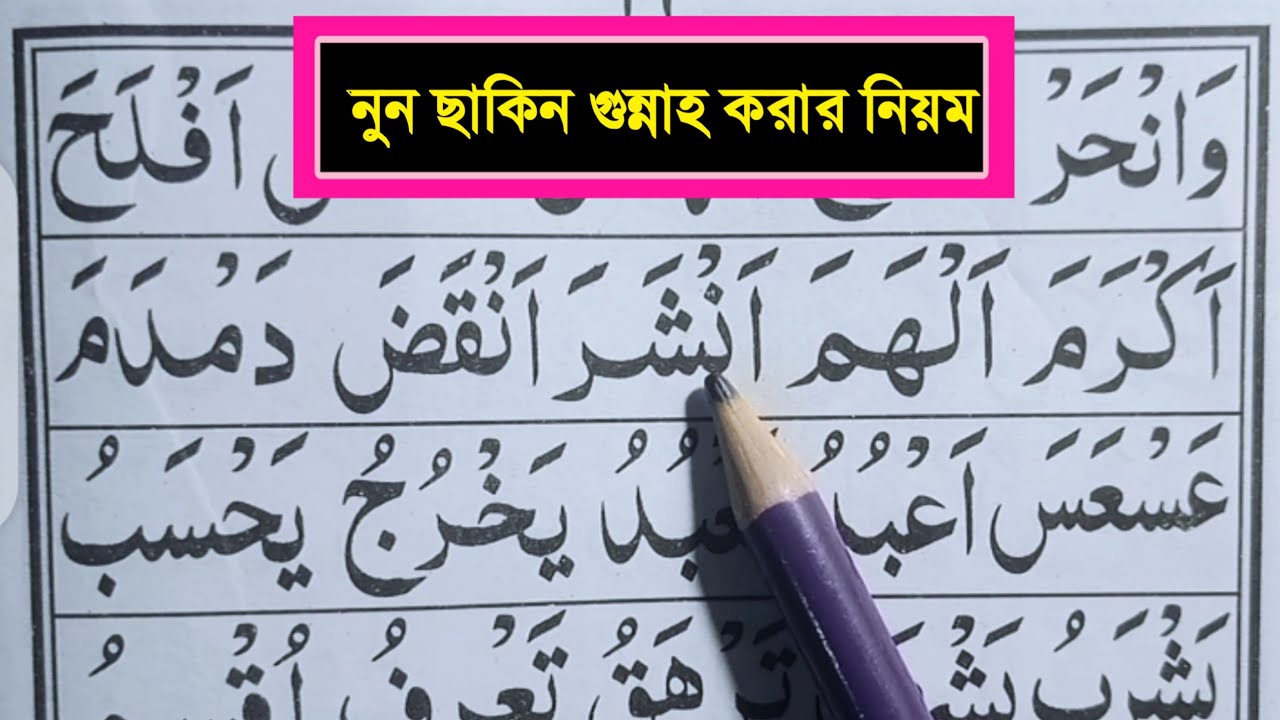 নুন ছাকিন গুন্নাহ করার নিয়ম
وَانْحَرْ اَفْلَحَ
اَكْرَمَ اَلْهَمَ اَنْشَرَ اَنْقَضَ دَمْدَمَ
عَسْعَسَ اَعْبُدُ يَخْرُجُ يَحْسَبُ
يَشْرَبُ تَعْرِفُ